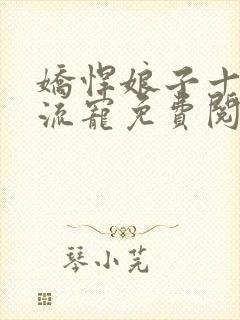 嬌悍娘子十
流寵免費閱
琴小芫